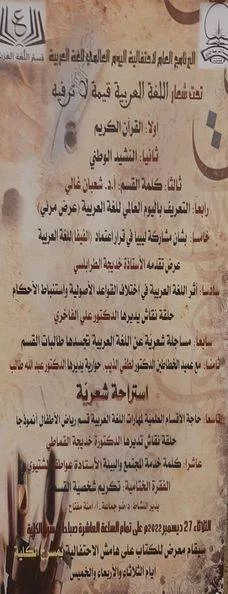 قسم اللغة العربية
البرنامج العام لاحتفالية اليوم العالمي للغة العربية
تحت شعار اللغة العربية قيمة لا ترفيه
أولا: القرآن الكريم
ثانيا: النشيد الوطني
ثالثا: كلمة القسم: أ.د. شعبان غالي
رابعا: التعريف باليوم العالمي للغة العربية (عرض مرئي)
خامسا: بشأن مشاركة ليبيا في قرار اعتماد (الفيفا) للغة العربية
عرض تقدمه الأستاذة خديجة الطرابلسي
سادسا: أثر اللغة العربية في اختلاف القواعد الأصولية واستنباط الأحكام
حلقة نقاش يديرها الدكتور علي الفاخري
سابعا: مساجلة شعرية عن اللغة العربية تجسدها طالبات القسم
ثامنا: مع عميد الخطاطين الدكتور لطفي الذيب. حوارية يديرها الدكتور عبد الله طالب
استراحة شعرية
تاسعا: حاجة الأقسام العلمية لمهارات اللغة العربية قسم رياض الأطفال أنموذجا
حلقة نقاش تديرها الدكتورة خديجة القماطي
عاشرا: كلمة خدمة المجتمع والبيئة الأستاذة عواطف
الفقرة الختامية: تكريم شخصية القسم
يدير النشاط: د. جماعة .. أ. أمنة مفتاح
الثلاثاء 27 ديسمبر 2022م على تمام الساعة العاشرة صباحا الكلية
سيقام معرض للكتاب على هامش الاحتفالية بمسرح الكلية
أيام الثلاثاء والأربعاء والخميس